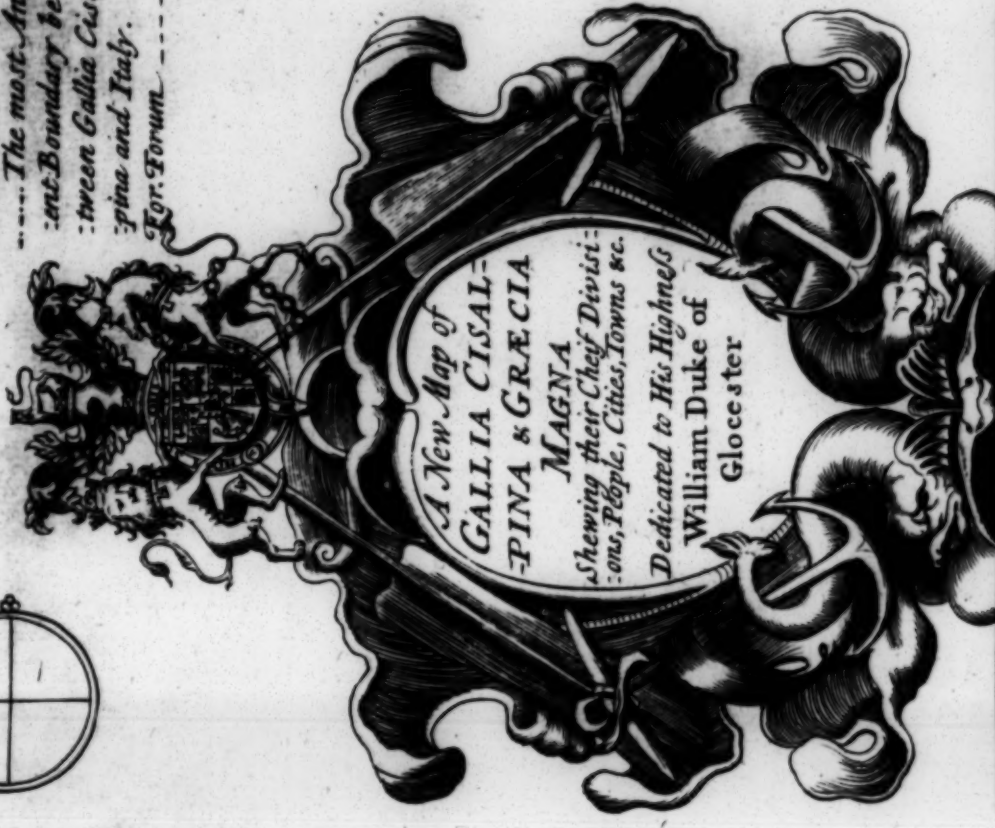 ----- The most An
:ent Boundary be
:tween Gallia Cis
:pina and Italy.
For. Forum
A New Map of
GALLIA CISAL=
=PINA & GRÆCIA
MAGNA
Shewing their Cheif Divisi=
:ons, People, Cities, Towns &c.
Dedicated to His Highneſs
William Duke of
Glocester